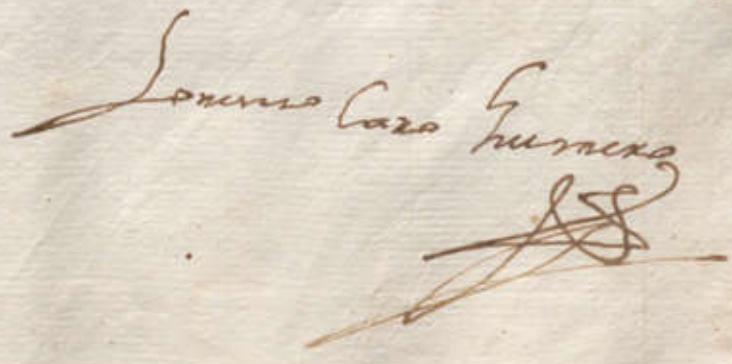 Lorenzo Caro Guerrero